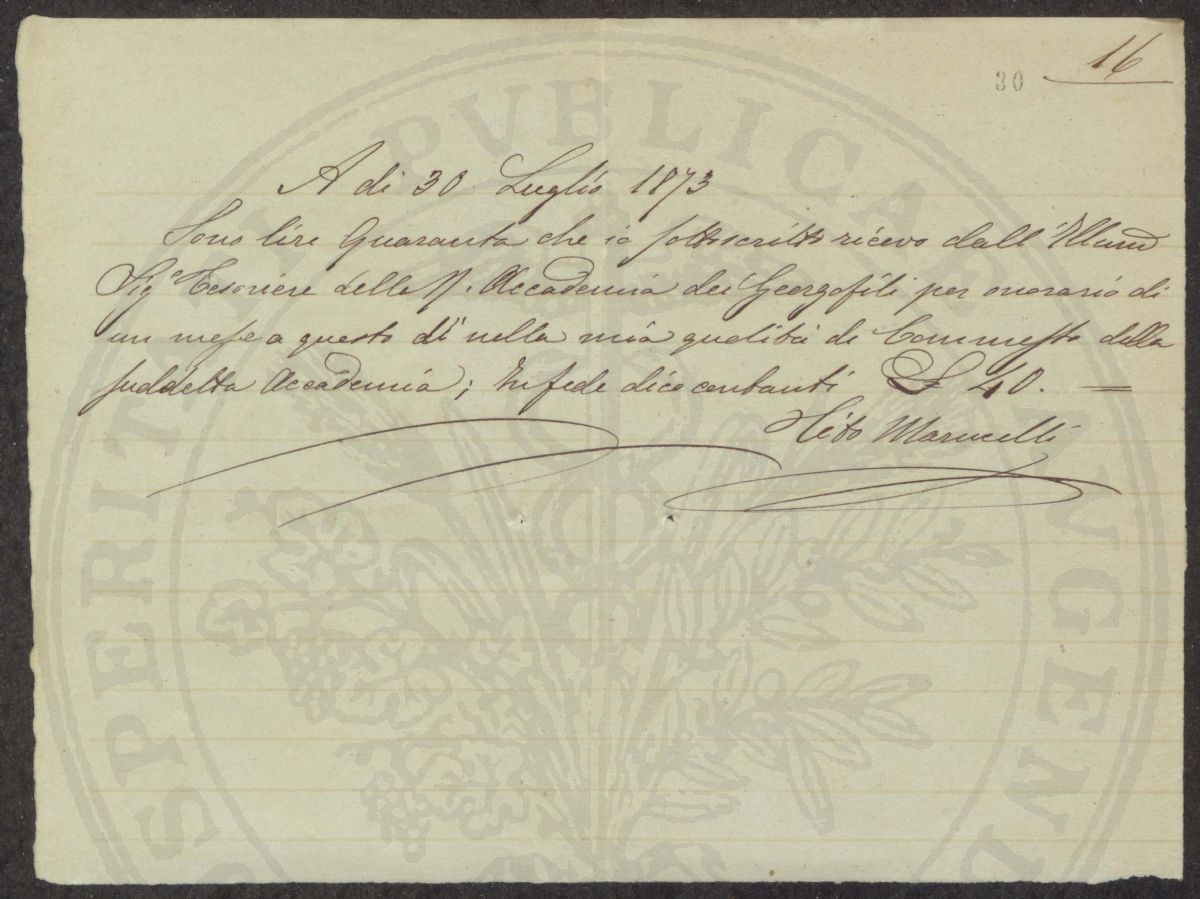 16
30
A di 30 Luglio 1873
Sono lire Quaranta che io sottoscritto ricevo dall'Illmo
Sig.e Tesoriere della R. Accademia dei Georgofili per onorario di
un mese a questo dì nella mia qualità di Commesso della
suddetta Accademia; In fede dico contanti £ 40. =
Tito Marucelli
PROSPERITATI PVBLICAE AVGENDAE